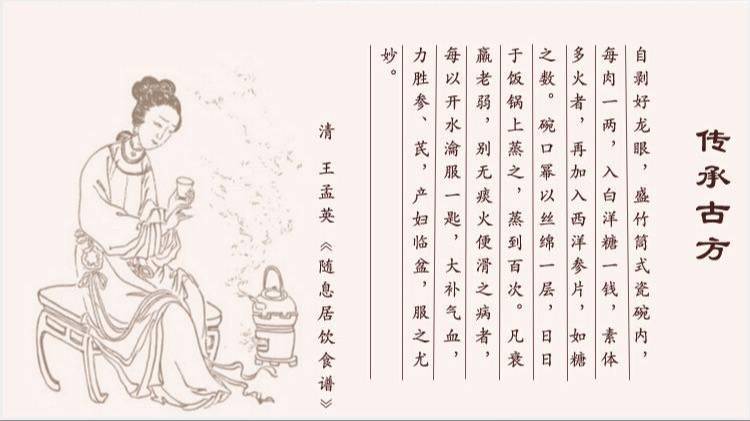 传承古方
自剥好龙眼，盛竹筒式瓷碗内，
每肉一两，入白洋糖一钱，素体
多火者，再加入西洋参片，如糖
之数。碗口幂以丝绵一层，日日
于饭锅上蒸之，蒸到百次。凡衰
羸老弱，别无痰火便滑之病者，
每以开水瀹服一匙，大补气血，
力胜参、芪，产妇临盆，服之尤
妙。
清 王孟英《随息居饮食谱》